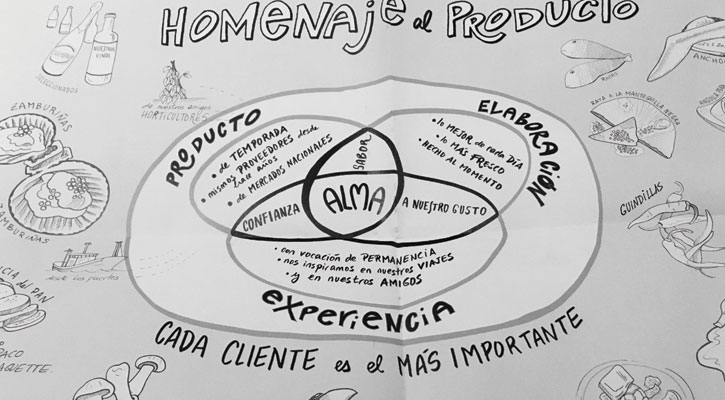 HOMENAJE al PRODUCTO
NUESTROS
VINOS
SELECCIONADOS
de nuestros amigos
HORTICULTORES
ZAMBURIÑAS
ZAMBURIÑAS
PRODUCTO
• de TEMPORADA
• mismos PROVEEDORES desde
hace años
• de MERCADOS NACIONALES
ELABORACIÓN
• lo MEJOR de cada DÍA
• lo MÁS FRESCO
• HECHO AL MOMENTO
SABOR
ALMA
CONFIANZA
A NUESTRO GUSTO
• con vocación de PERMANENCIA
• nos inspiramos en nuestros VIAJES
• y en nuestros AMIGOS
EXPERIENCIA
CADA CLIENTE es el MÁS IMPORTANTE
RAYA A LA MANTEQUILLA NEGRA
ANCHO
GUINDILLAS
del PAN
PACO
AQUETTE.